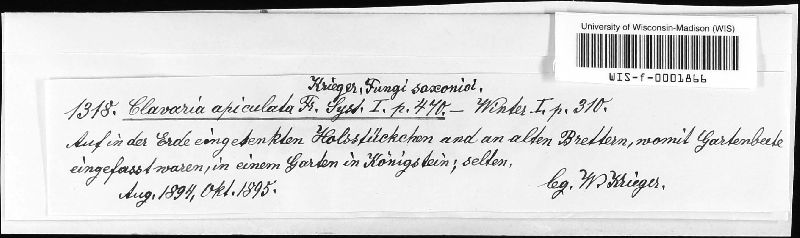 University of Wisconsin-Madison (WIS)
WIS-f-0001866
Krieger, Fungi saxonici.
1318. Clavaria apiculata Fr. Syst. I. p. 470. — Winter I. p. 310.
Auf in der Erde eingesenkten Holzstückchen und an alten Brettern, womit Gartenbeete
eingefasst waren, in einem Garten in Königstein; selten.
Aug. 1894, Okt. 1895.
lg. W. Krieger.